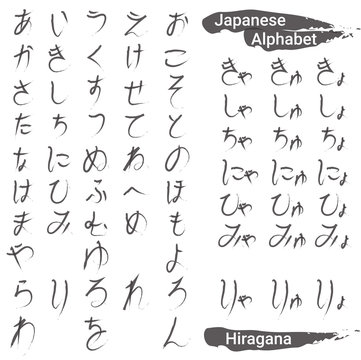 あ い う え お
か き く け こ
さ し す せ そ
た ち つ て と
な に ぬ ね の
は ひ ふ へ ほ
ま み む め も
や ゆ よ
ら り る れ ろ
わ を ん
Japanese
Alphabet
きゃ きゅ きょ
しゃ しゅ しょ
ちゃ ちゅ ちょ
にゃ にゅ にょ
ひゃ ひゅ ひょ
みゃ みゅ みょ
りゃ りゅ りょ
Hiragana